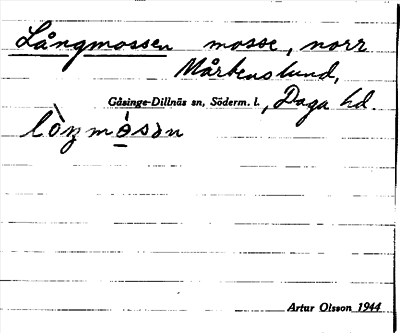 Långmossen mosse, norr
Mårtenslund,
Gåsinge-Dillnäs sn, Söderm. l., Daga hd.
Artur Olsson 1944